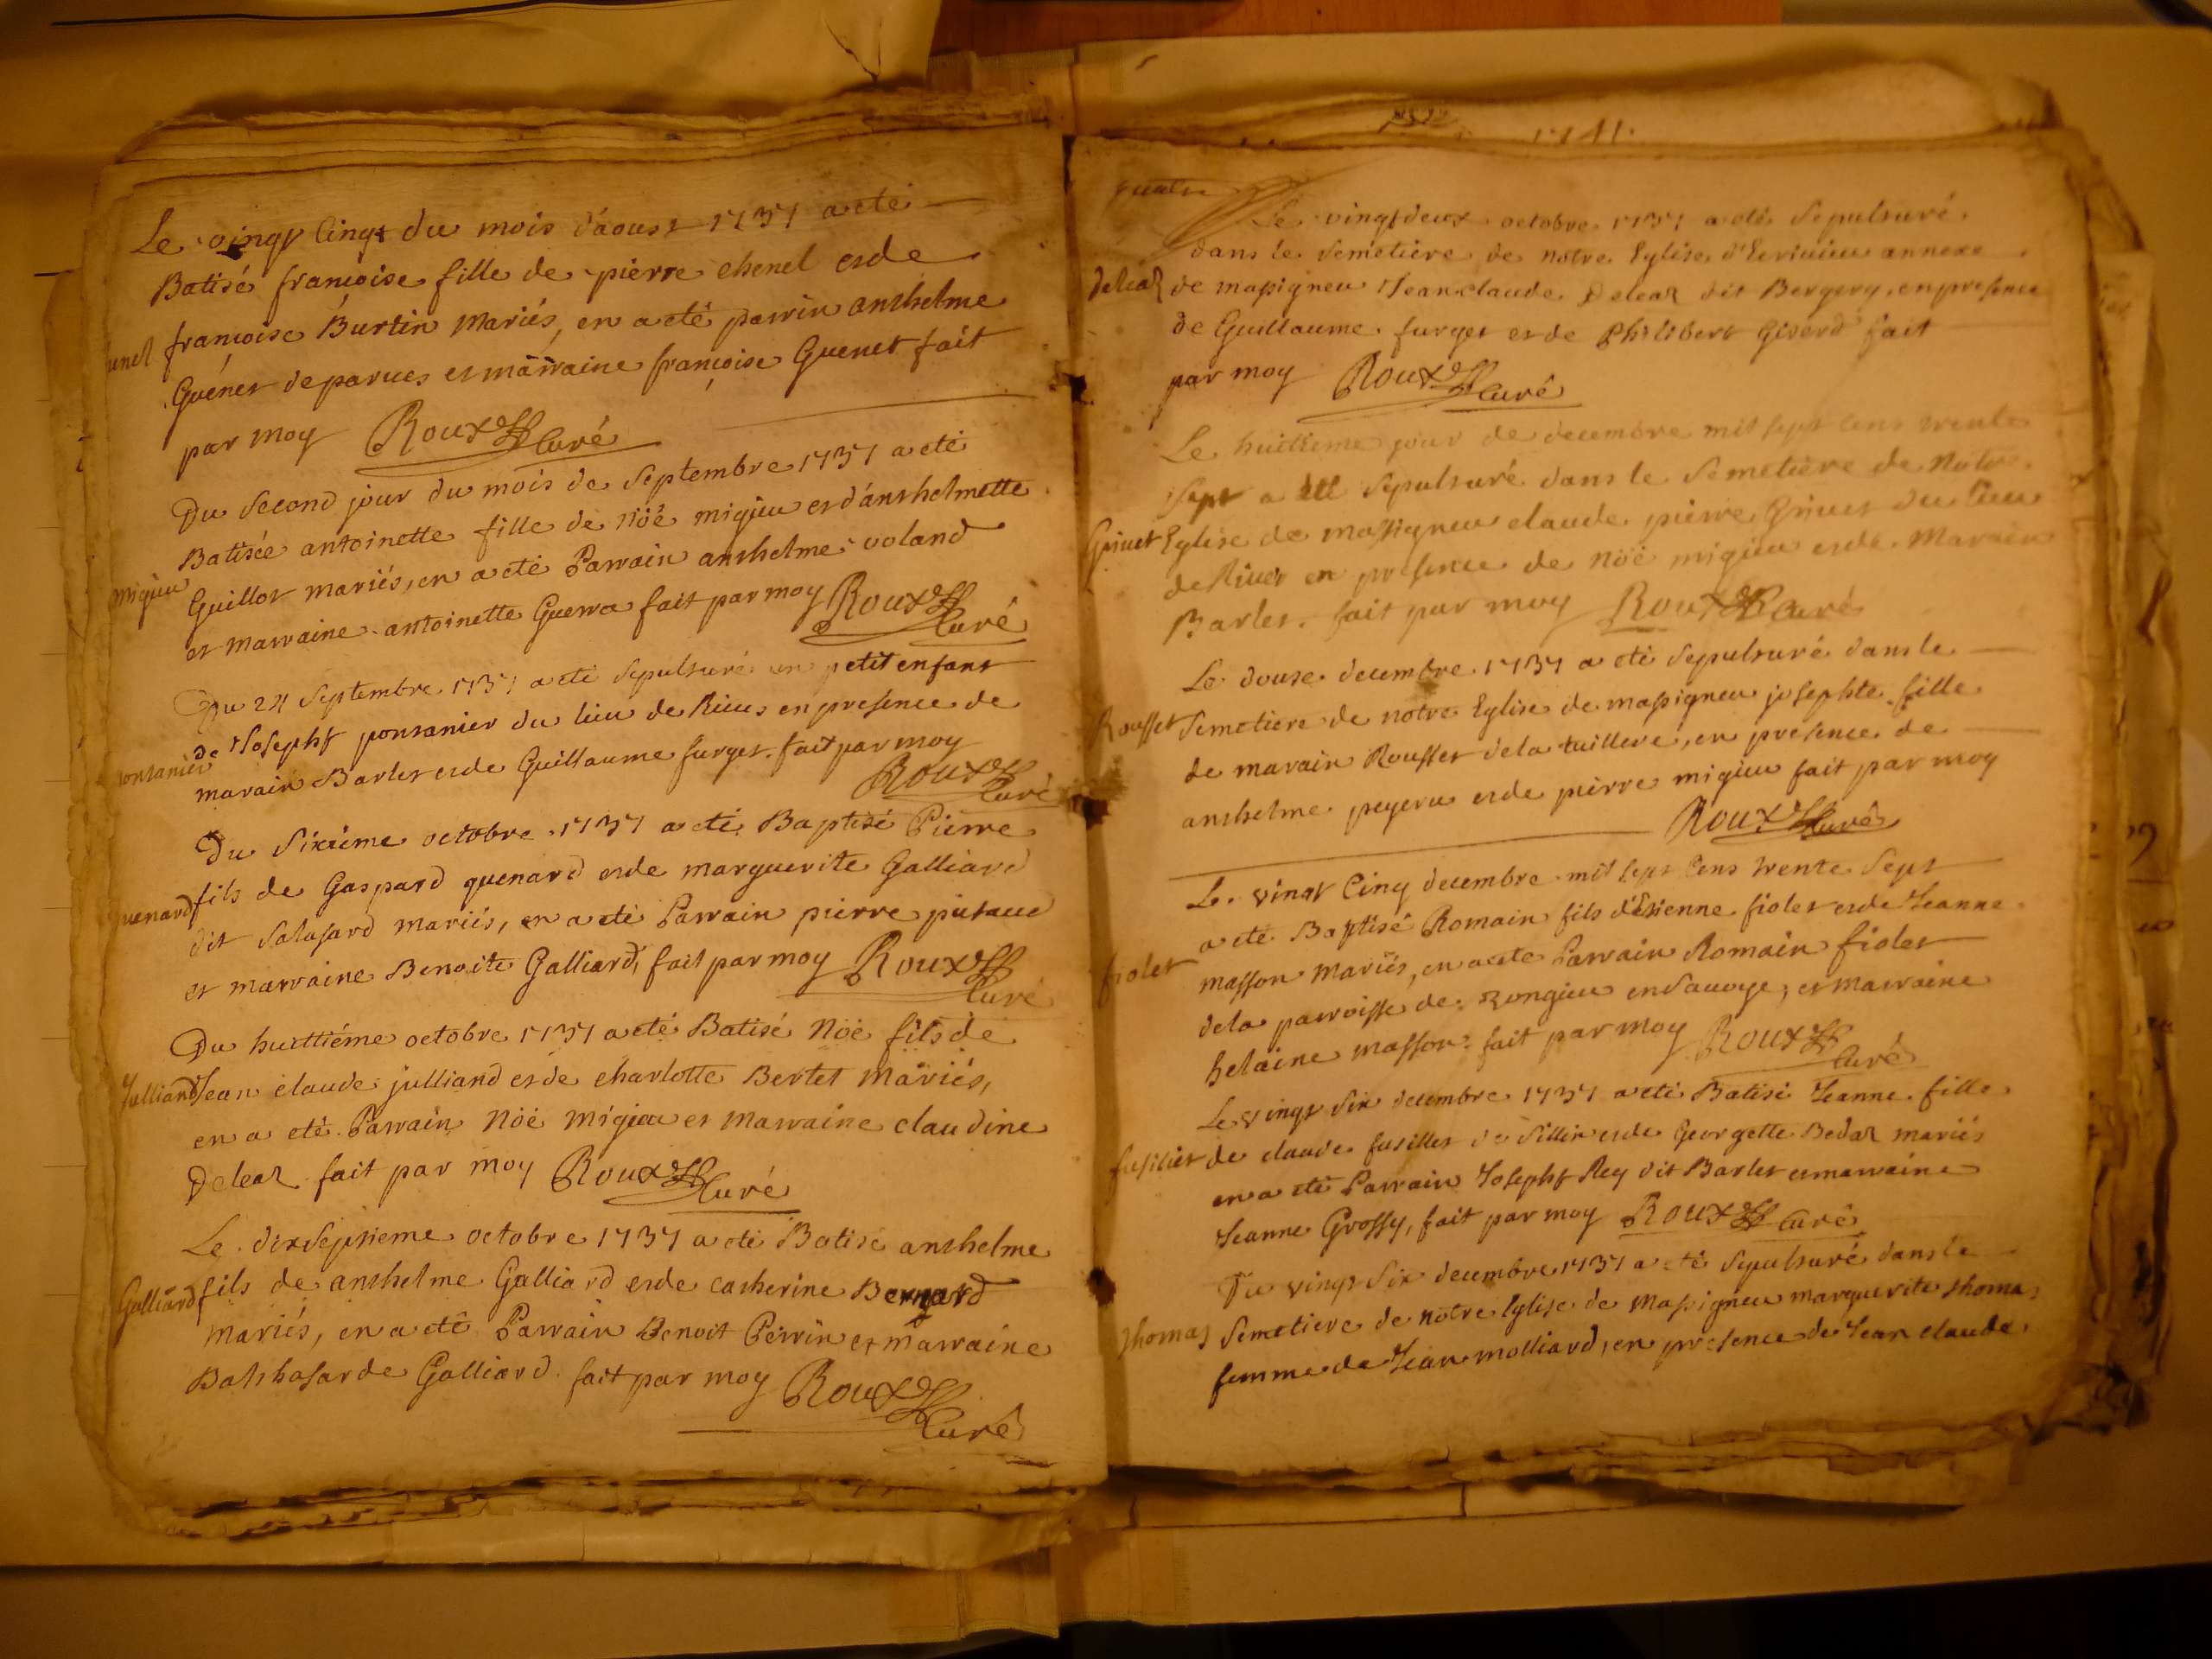 Le vingt Cinqt du mois d'aoust 1737 a eté
Batisé francoise fille de pierre chenel et de
francoise Burtin Mariés, en a eté parrin anthelme
Guenet de parves et marraine françoise Guenet fait
par moy Roux Curé
Du Second jour du mois de Septembre 1737 a eté
Batisée antoinette fille de Nöé migieu et d'anthelmette
migieu
Guillot mariés, en a eté Parrain anthelme voland
et marraine antoinette Guerra fait par moy Roux
Curé
Du 24 Septembre 1737 a eté Sepulturé un petit enfant
de Joseph ponsanier du lieu de Rives en presence de
marain Barlet et de Guillaume furget fait par moy
Roux
Curé
Du Sixiéme octobre 1737 a eté Baptisé Pierre
fils de Gaspard quenard et de marguerite Galliard
dit Salasard mariés, en a eté Parrain pierre
et marraine Benoite Galliard, fait par moy Roux
Curé
Du huittiéme octobre 1737 a eté Batisé Nöé fils de
Julliand Jean claude julliand et de charlotte Bertet Mariés,
en a eté Parrain Nöé Migieu et Marraine claudine
Deleaz fait par moy Roux Curé
Le dixSeptieme octobre 1737 a eté Batisé anthelme
Galliard fils de anthelme Galliard et de catherine Bernard
Mariés, en a eté Parrain Benoit Perrin et marraine
Balthasarde Galliard fait par moy Roux
Curé
1741.
quatre
Le vingtdeux octobre 1737 a eté Sepulturé
dans le Semetiere de notre Eglise annexe
Deleaz de massigneu Jean claude Deleaz dit Bergery, en presence
de Guillaume furget et de Philibert Giserd fait
par moy Roux Curé
Le huittieme jour de decembre mil sept cens trente
sept a eté Sepulturé dans le Semetiére de Notre
Grivet Eglise de Massigneu claude pierre Grivet du lieu
de Rives en presence de Nöé migieu et de Marain
Barlet. fait par moy Roux Curé
Le douse decembre 1737 a eté Sepulturé dans le
Rousset Semetiere de notre Eglise de massigneu josephte fille
de marain Rousset de la tuillere, en presence de
anthelme et de pierre migieu fait par moy
Roux Curé
Le vingt Cinq decembre mil sept Cens trente Sept
a eté Baptisé Romain fils d'Etienne fiolet et de Jeanne
fiolet
masson Mariés, en a eté Parrain Romain fiolet
de la parroisse de en Savoye, et Marraine
helaine masson fait par moy Roux
Curé
Le vingt Six decembre 1737 a eté Batisé Jeanne fille
fusilier de claude fusillet de Sillin et de Georgette Bedaz mariés
en a eté Parrain Joseph Rey dit Barlet et marraine
Jeanne Grossy, fait par moy Roux Curé
Du vingt Six decembre 1737 a eté Sepulturé dans le
thomas Semetiere de notre Eglise de Massigneu marguerite thomas
femme de Jean molliard, en presence de Jean claude